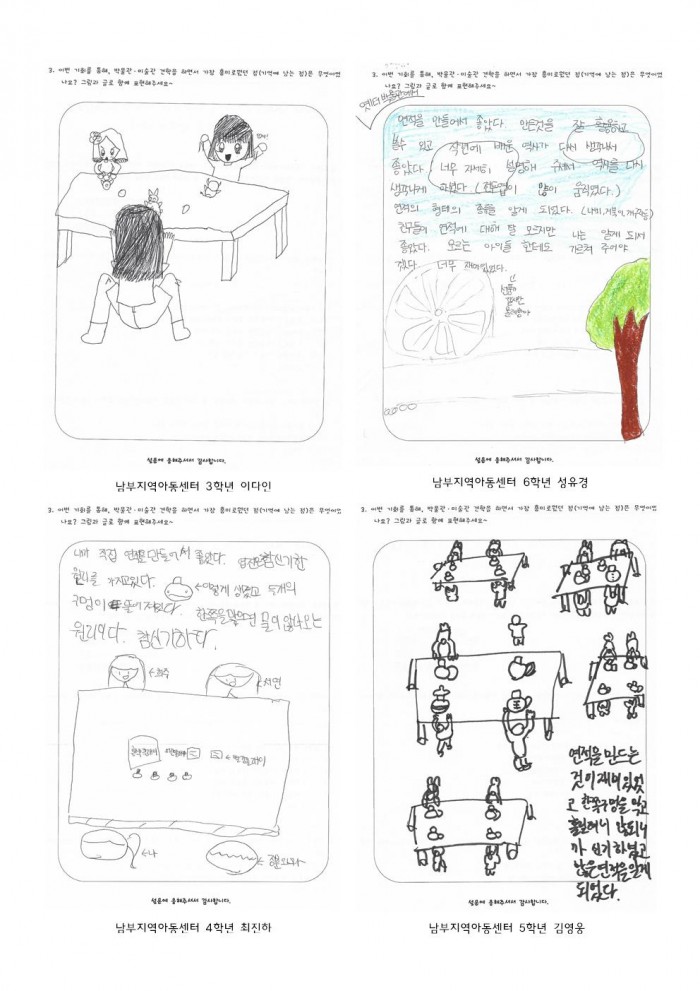 3. 이번 기회를 통해, 박물관·미술관 견학을 하면서 가장 흥미로웠던 점(기억에 남는 점)은 무엇이었
나요? 그림과 글로 함께 표현해주세요~
설문에 응해주셔서 감사합니다.
남부지역아동센터 3학년 이다인
3. 이번 기회를 통해, 박물관·미술관 견학을 하면서 가장 흥미로웠던 점(기억에 남는 점)은 무엇이었
나요? 그림과 글로 함께 표현해주세요~
연적을 만들어서 좋았다. 만든것을 잘 활용하고
볼수 있고 작년에 배운 역사가 다시 생각나서
좋았다. 너무 자세히 설명해 주셔서 역사를 다시
생각나게
연적의 형태의 종류를 알게 되었다.
친구들이 연적에 대해 잘 모르지만 나는 알게 되서
좋았다. 모르는 아이들 한테도 가르쳐 주어야
겠다. 너무 재미있었다.
설문에 응해주셔서 감사합니다.
남부지역아동센터 6학년 성유경
3. 이번 기회를 통해, 박물관·미술관 견학을 하면서 가장 흥미로웠던 점(기억에 남는 점)은 무엇이었
나요? 그림과 글로 함께 표현해주세요~
내가 직접 연적을 만들어서 좋았다. 참신기한
원리를 가지고있다.
이렇게 생겼고 두개의
구멍이
한쪽을막으면 물이 않나오는
원리이다. 참신기하다.
희주
서연
나
설문에 응해주셔서 감사합니다.
남부지역아동센터 4학년 최진하
3. 이번 기회를 통해, 박물관·미술관 견학을 하면서 가장 흥미로웠던 점(기억에 남는 점)은 무엇이었
나요? 그림과 글로 함께 표현해주세요~
연적을 만드는
것이 재미있었
고 한쪽구멍을 막고
흘렸더니 안되니
까 신기하였고
많은연적을알게
되었다.
설문에 응해주셔서 감사합니다.
남부지역아동센터 5학년 김영웅